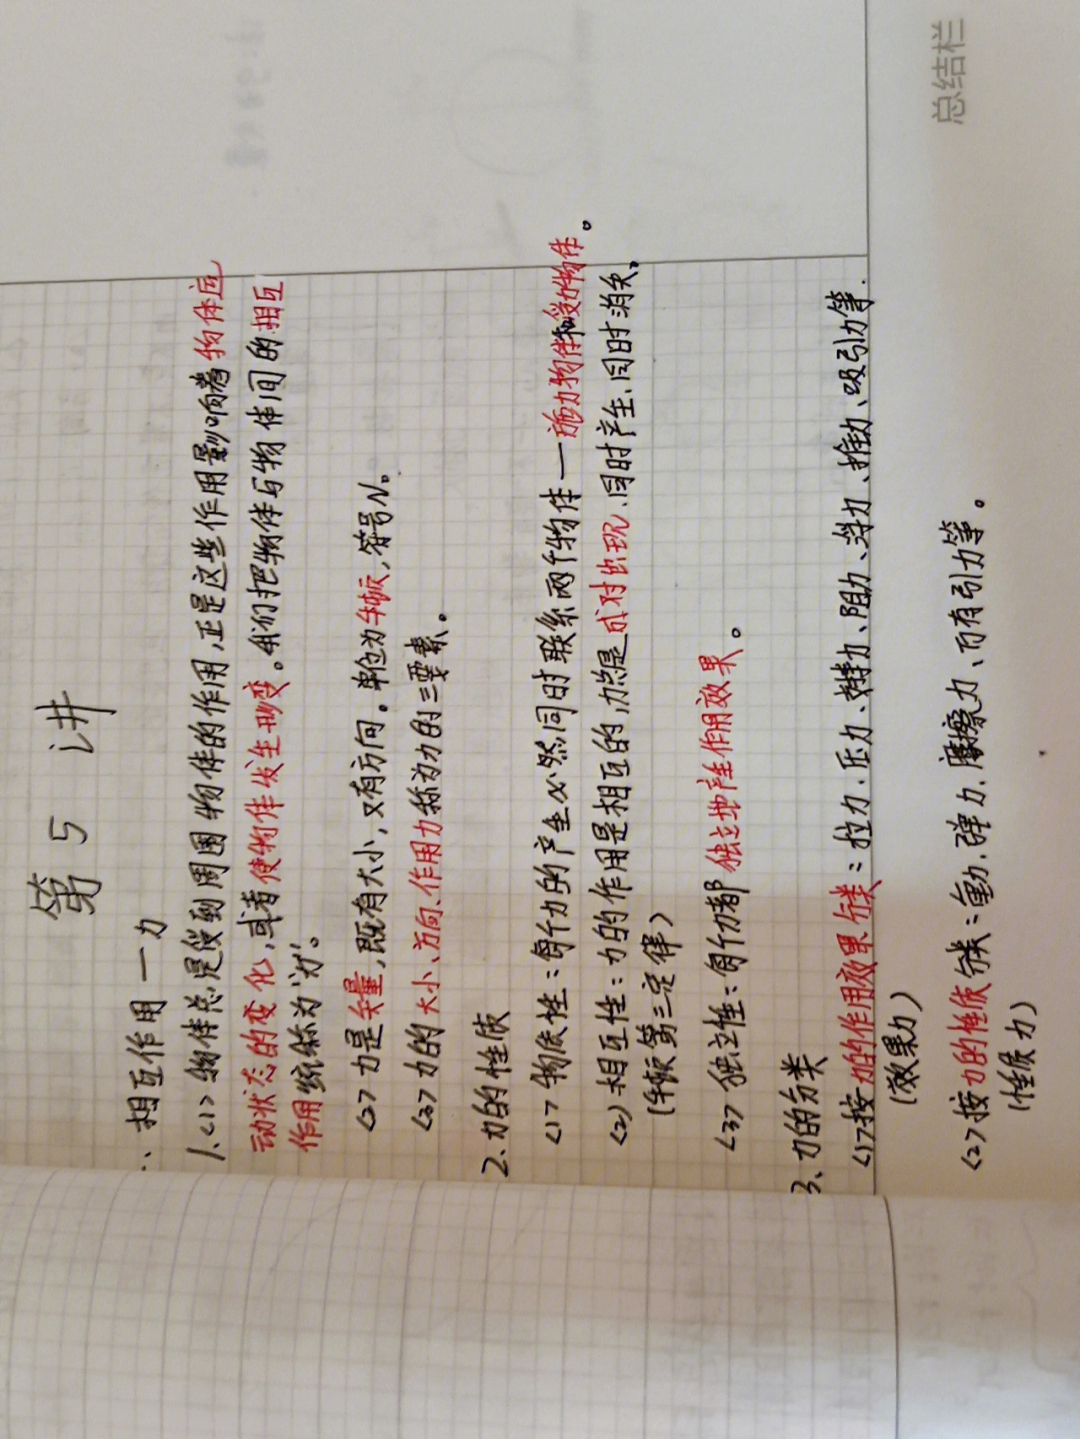 第 5 讲
、相互作用一力
1、<1> 物体总是受到周围物体的作用,正是这些作用影响着物体运
动状态的变化,或者使物体发生形变。我们把物体与物体间的相互
作用统称为“力”。
<2> 力是矢量,既有大小,又有方向。单位为牛顿,符号N。
<3> 力的大小、方向、作用力称为力的三要素。
2、力的性质
<1> 物质性:每个力的产生必然同时联系两个物体一施力物体和受力物体。
<2> 相互性:力的作用是相互的,力总是成对出现、同时产生、同时消失。
(牛顿第三定律)
<3> 独立性:每个力都独立地产生作用效果。
3、力的分类
<1> 按力的作用效果分类:拉力、压力、支持力、阻力、浮力、推动、吸引力等.
(效果力)
<2> 按力的性质分类:重力、弹力、摩擦力、万有引力等。
(性质力)
总结栏